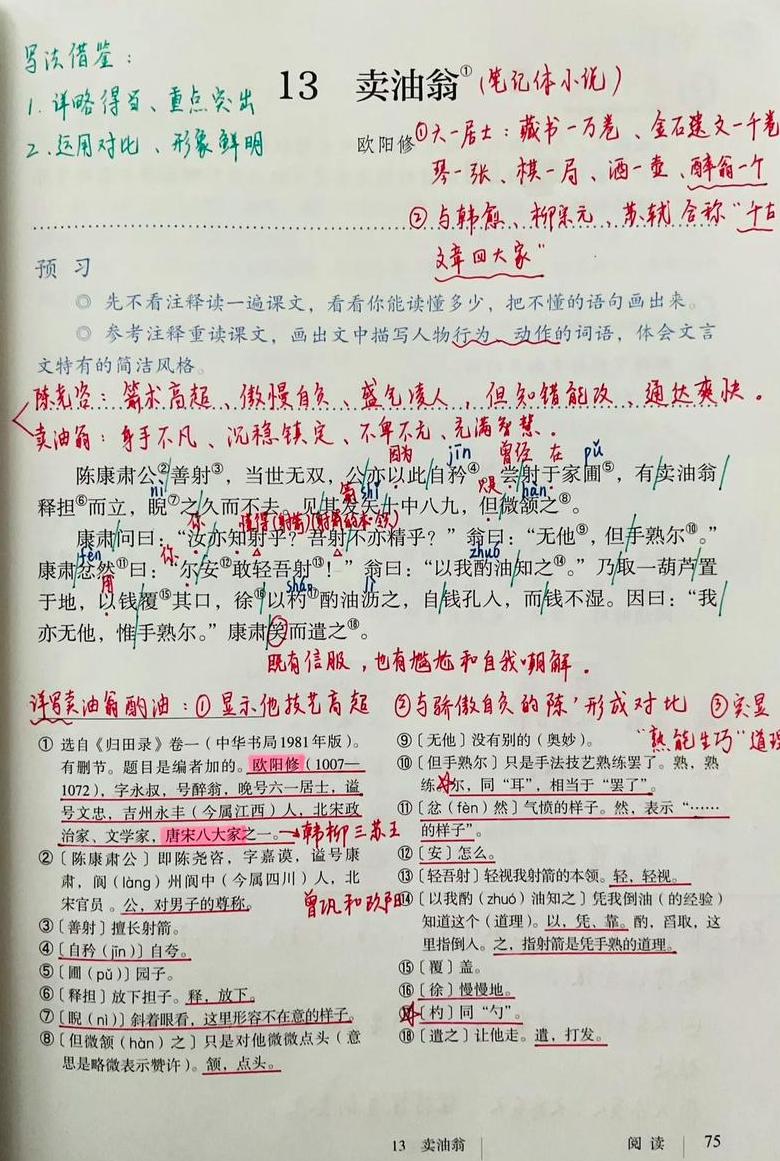 写法借鉴：
1. 详略得当、重点突出
2. 运用对比、形象鲜明
13 卖油翁①（笔记体小说）
欧阳修
①六一居士：藏书一万卷、金石遗文一千卷
琴一张、棋一局、酒一壶、醉翁一个
②与韩愈、柳宗元、苏轼合称“千古
文章四大家”
预习
◎ 先不看注释读一遍课文，看看你能读懂多少，把不懂的语句画出来。
◎ 参考注释重读课文，画出文中描写人物行为、动作的词语，体会文言
文特有的简洁风格。
陈尧咨：箭术高超、傲慢自负、盛气凌人，但知错能改、通达爽快。
卖油翁：身手不凡、沉稳镇定、不卑不亢、充满智慧。
因为 jīn 曾经 在 pǔ
陈康肃公②善射③，当世无双，公亦以此自矜④。尝射于家圃⑤，有卖油翁
nì 箭 shǐ 只是 hàn
释担⑥而立，睨⑦之久而不去。见其发矢十中八九，但微颔之⑧。
你 懂得(射箭)(射箭的本领)
康肃问曰：“汝亦知射乎？吾射不亦精乎？”翁曰：“无他⑨，但手熟尔⑩。”
fèn 你 zhuó
康肃忿然⑪曰：“尔安⑫敢轻吾射⑬！”翁曰：“以我酌油知之⑭。”乃取一葫芦置
用 sháo lì
于地，以钱覆⑮其口，徐⑯以杓⑰酌油沥之，自钱孔入，而钱不湿。因曰：“我
亦无他，惟手熟尔。”康肃笑而遣之⑱。
既有信服，也有尴尬和自我嘲解。
详写卖油翁酌油：①显示他技艺高超 ②与骄傲自负的陈，形成对比 ③突显
“熟能生巧”道理
① 选自《归田录》卷一（中华书局1981年版）。
有删节。题目是编者加的。欧阳修（1007—
1072），字永叔，号醉翁，晚号六一居士，谥
号文忠，吉州永丰（今属江西）人，北宋政
治家、文学家，唐宋八大家之一。→韩柳三苏王
曾巩和欧阳
②〔陈康肃公〕即陈尧咨，字嘉谟，谥号康
肃，阆（làng）州阆中（今属四川）人，北
宋官员。公，对男子的尊称。
③〔善射〕擅长射箭。
④〔自矜（jīn）〕自夸。
⑤〔圃（pǔ）〕园子。
⑥〔释担〕放下担子。释，放下。
⑦〔睨（nì）〕斜着眼看，这里形容不在意的样子。
⑧〔但微颔（hàn）之〕只是对他微微点头（意
思是略微表示赞许）。颔，点头。
⑨〔无他〕没有别的（奥妙）。
⑩〔但手熟尔〕只是手法技艺熟练罢了。熟，熟
练。尔，同“耳”，相当于“罢了”。
⑪〔忿（fèn）然〕气愤的样子。然，表示“……
的样子”。
⑫〔安〕怎么。
⑬〔轻吾射〕轻视我射箭的本领。轻，轻视。
⑭〔以我酌（zhuó）油知之〕凭我倒油（的经验）
知道这个（道理）。以，凭、靠。酌，舀取，这
里指倒入。之，指射箭是凭手熟的道理。
⑮〔覆〕盖。
⑯〔徐〕慢慢地。
⑰〔杓〕同“勺”。
⑱〔遣之〕让他走。遣，打发。
13 卖油翁 阅读 75